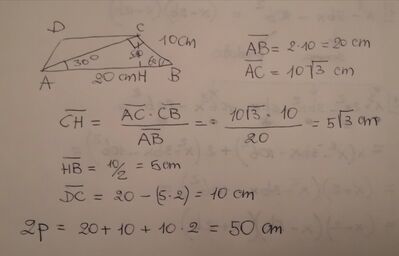 D C 10cm
30° 30° 60°
A 20cm H B
AB = 2·10 = 20 cm
AC = 10√3 cm
CH = AC · CB / AB = 10√3 · 10 / 20 = 5√3 cm
HB = 10/2 = 5cm
DC = 20 - (5·2) = 10 cm
2p = 20 + 10 + 10·2 = 50 cm